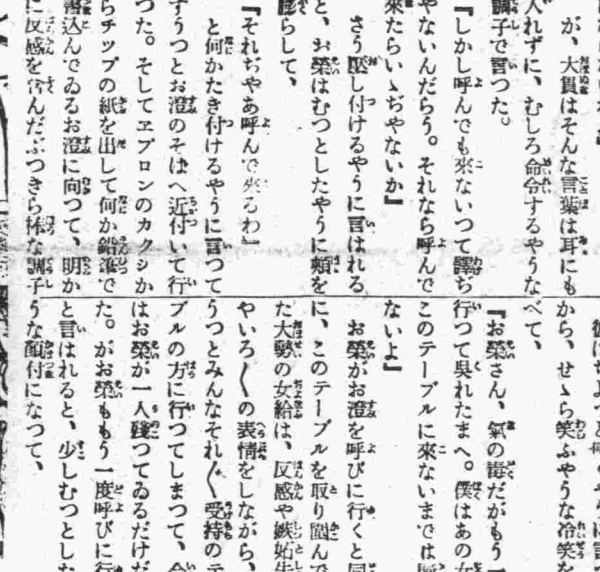 が、大賀はそんな言葉は耳にも
入れずに、むしろ命令するやうな
調子で言つた。
『しかし呼んでも來ないつて譯ぢ
やないんだらう。それなら呼んで
來たらいゝぢやないか』
さう壓し付けるやうに言はれる
と、お榮はむつとしたやうに頬を
膨らして、
『それぢやあ呼んで來るわ』
と何かたき付けるやうに言つて
うつとお澄のそばへ近付いて行
つた。そしてエプロンのカクシか
らチップの紙を出して何か鉛筆で
書込んでゐるお澄に向つて、明か
に反感を含んだぶつきら棒な調子
から、せゝら笑ふやうな冷笑を
べて、
『お榮さん、氣の毒だがもう一
行つて吳れたまへ。僕はあの女
このテーブルに來ないまでは
ないよ』
お榮がお澄を呼びに行くと同
に、このテーブルを取り圍んで
た大勢の女給は、反感や嫉妬
やいろ〱の表情をしながら、
うつとみんなそれ〲受持のテ
ブルの方に行つてしまつて、
はお榮が一人殘つてゐるだけだ
た。がお榮ももう一度呼びに行
と言はれると、少しむつとした
うな顏付になつて、